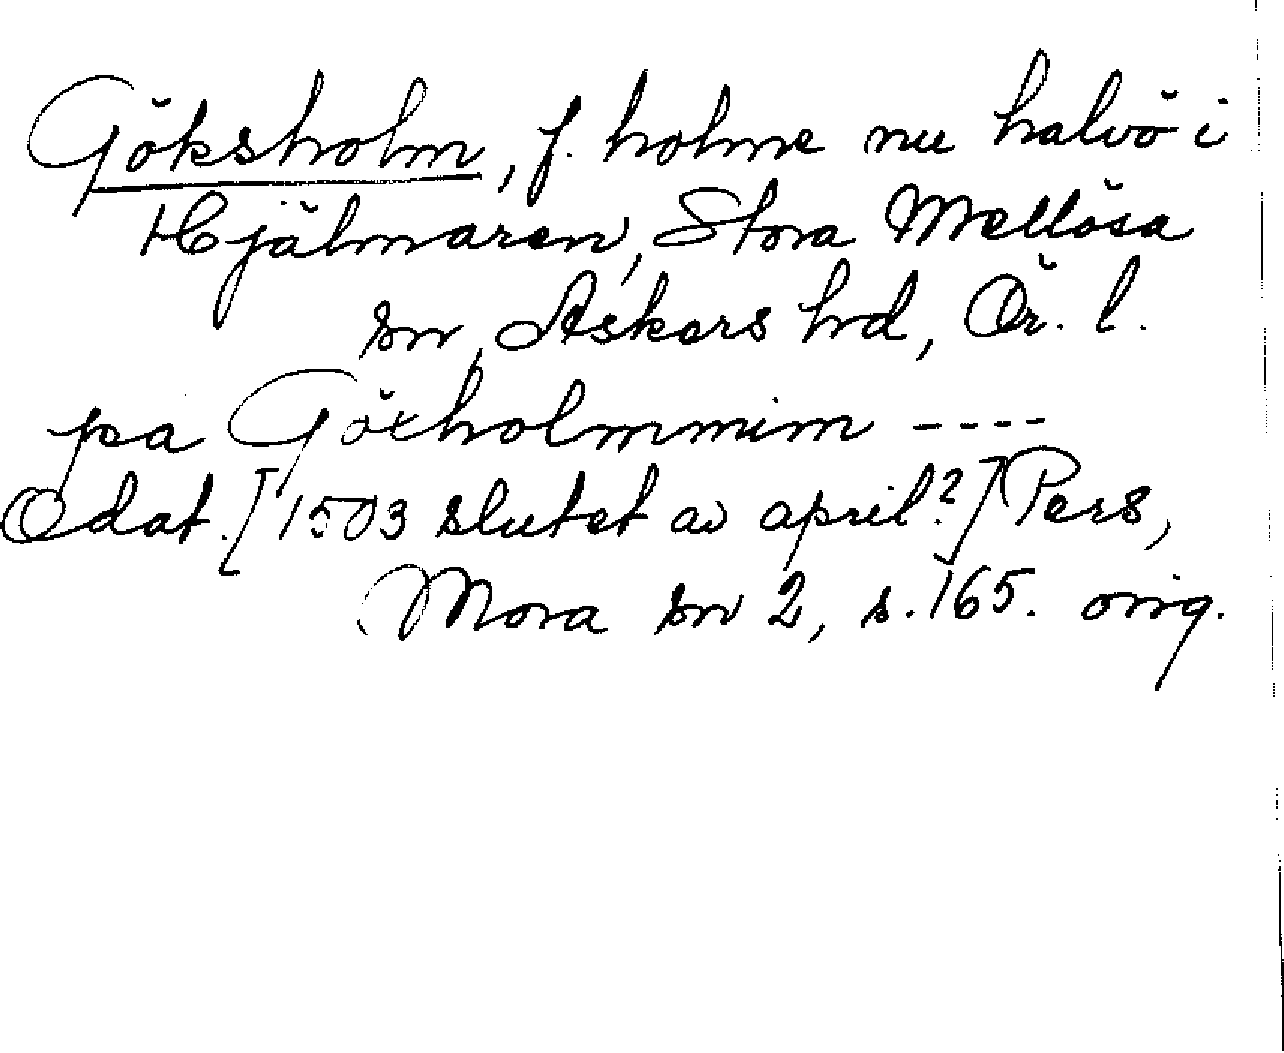 Göksholm, f. holme nu halvö i
Hjälmaren, Stora Mellösa
sn, Askers hd, Ör. l.
pa Göxholmmim ----
Odat. [1503 slutet av april?] Pers,
Mora sn 2, s. 165. orig.